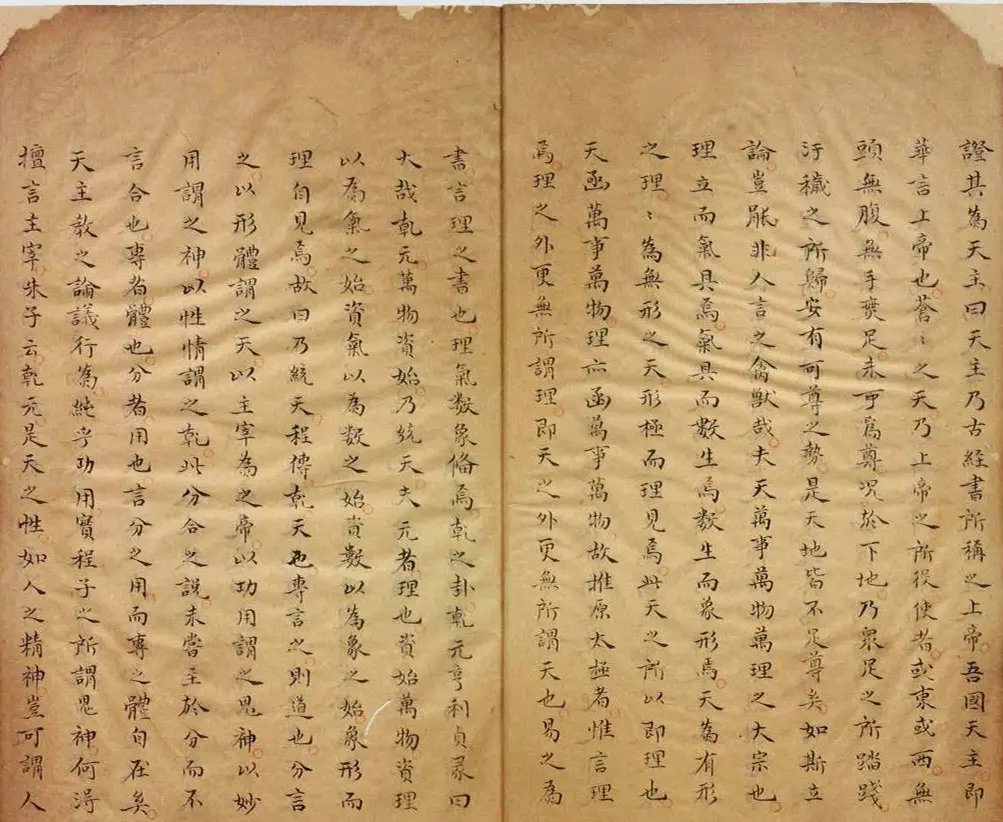 證其為天主曰天主乃古經書所稱之上帝吾國天主即
華言上帝也蒼〻之天乃上帝之所役使者或東或西無
頭無腹無手無足未可為尊况於下地乃眾足之所踏踐
汙穢之所歸安有可尊之勢是天地皆不足尊矣如斯立
論豈能非人言之禽獸哉夫天萬事萬物萬理之大宗也
理立而氣具焉氣具而数生焉数生而象形焉天為有形
之理〻為無形之天形極而理見焉此天之所以即理也
天函萬事萬物理亦函萬事萬物故推原太極者惟言理
焉理之外更無所謂理即天之外更無所謂天也易之為
書言理之書也理氣数象俻焉乾之卦乾元亨利貞彖曰
大哉乾元萬物資始乃統天夫元者理也資始萬物資理
以為氣之始資氣以為数之始資數以為象之始象形而
理自見焉故曰乃統天程傳乾天也專言之則道也分言
之以形體謂之天以主宰為之帝以功用謂之鬼神以妙
用謂之神以性情謂之乾此分合之說未嘗主於分而不
言合也專者體也分者用也言分之用而專之體自在矣
天主教之論議行為純乎功用實程子之所謂鬼神何淂
擅言主宰朱子云乾元是天之性如人之精神豈可謂人